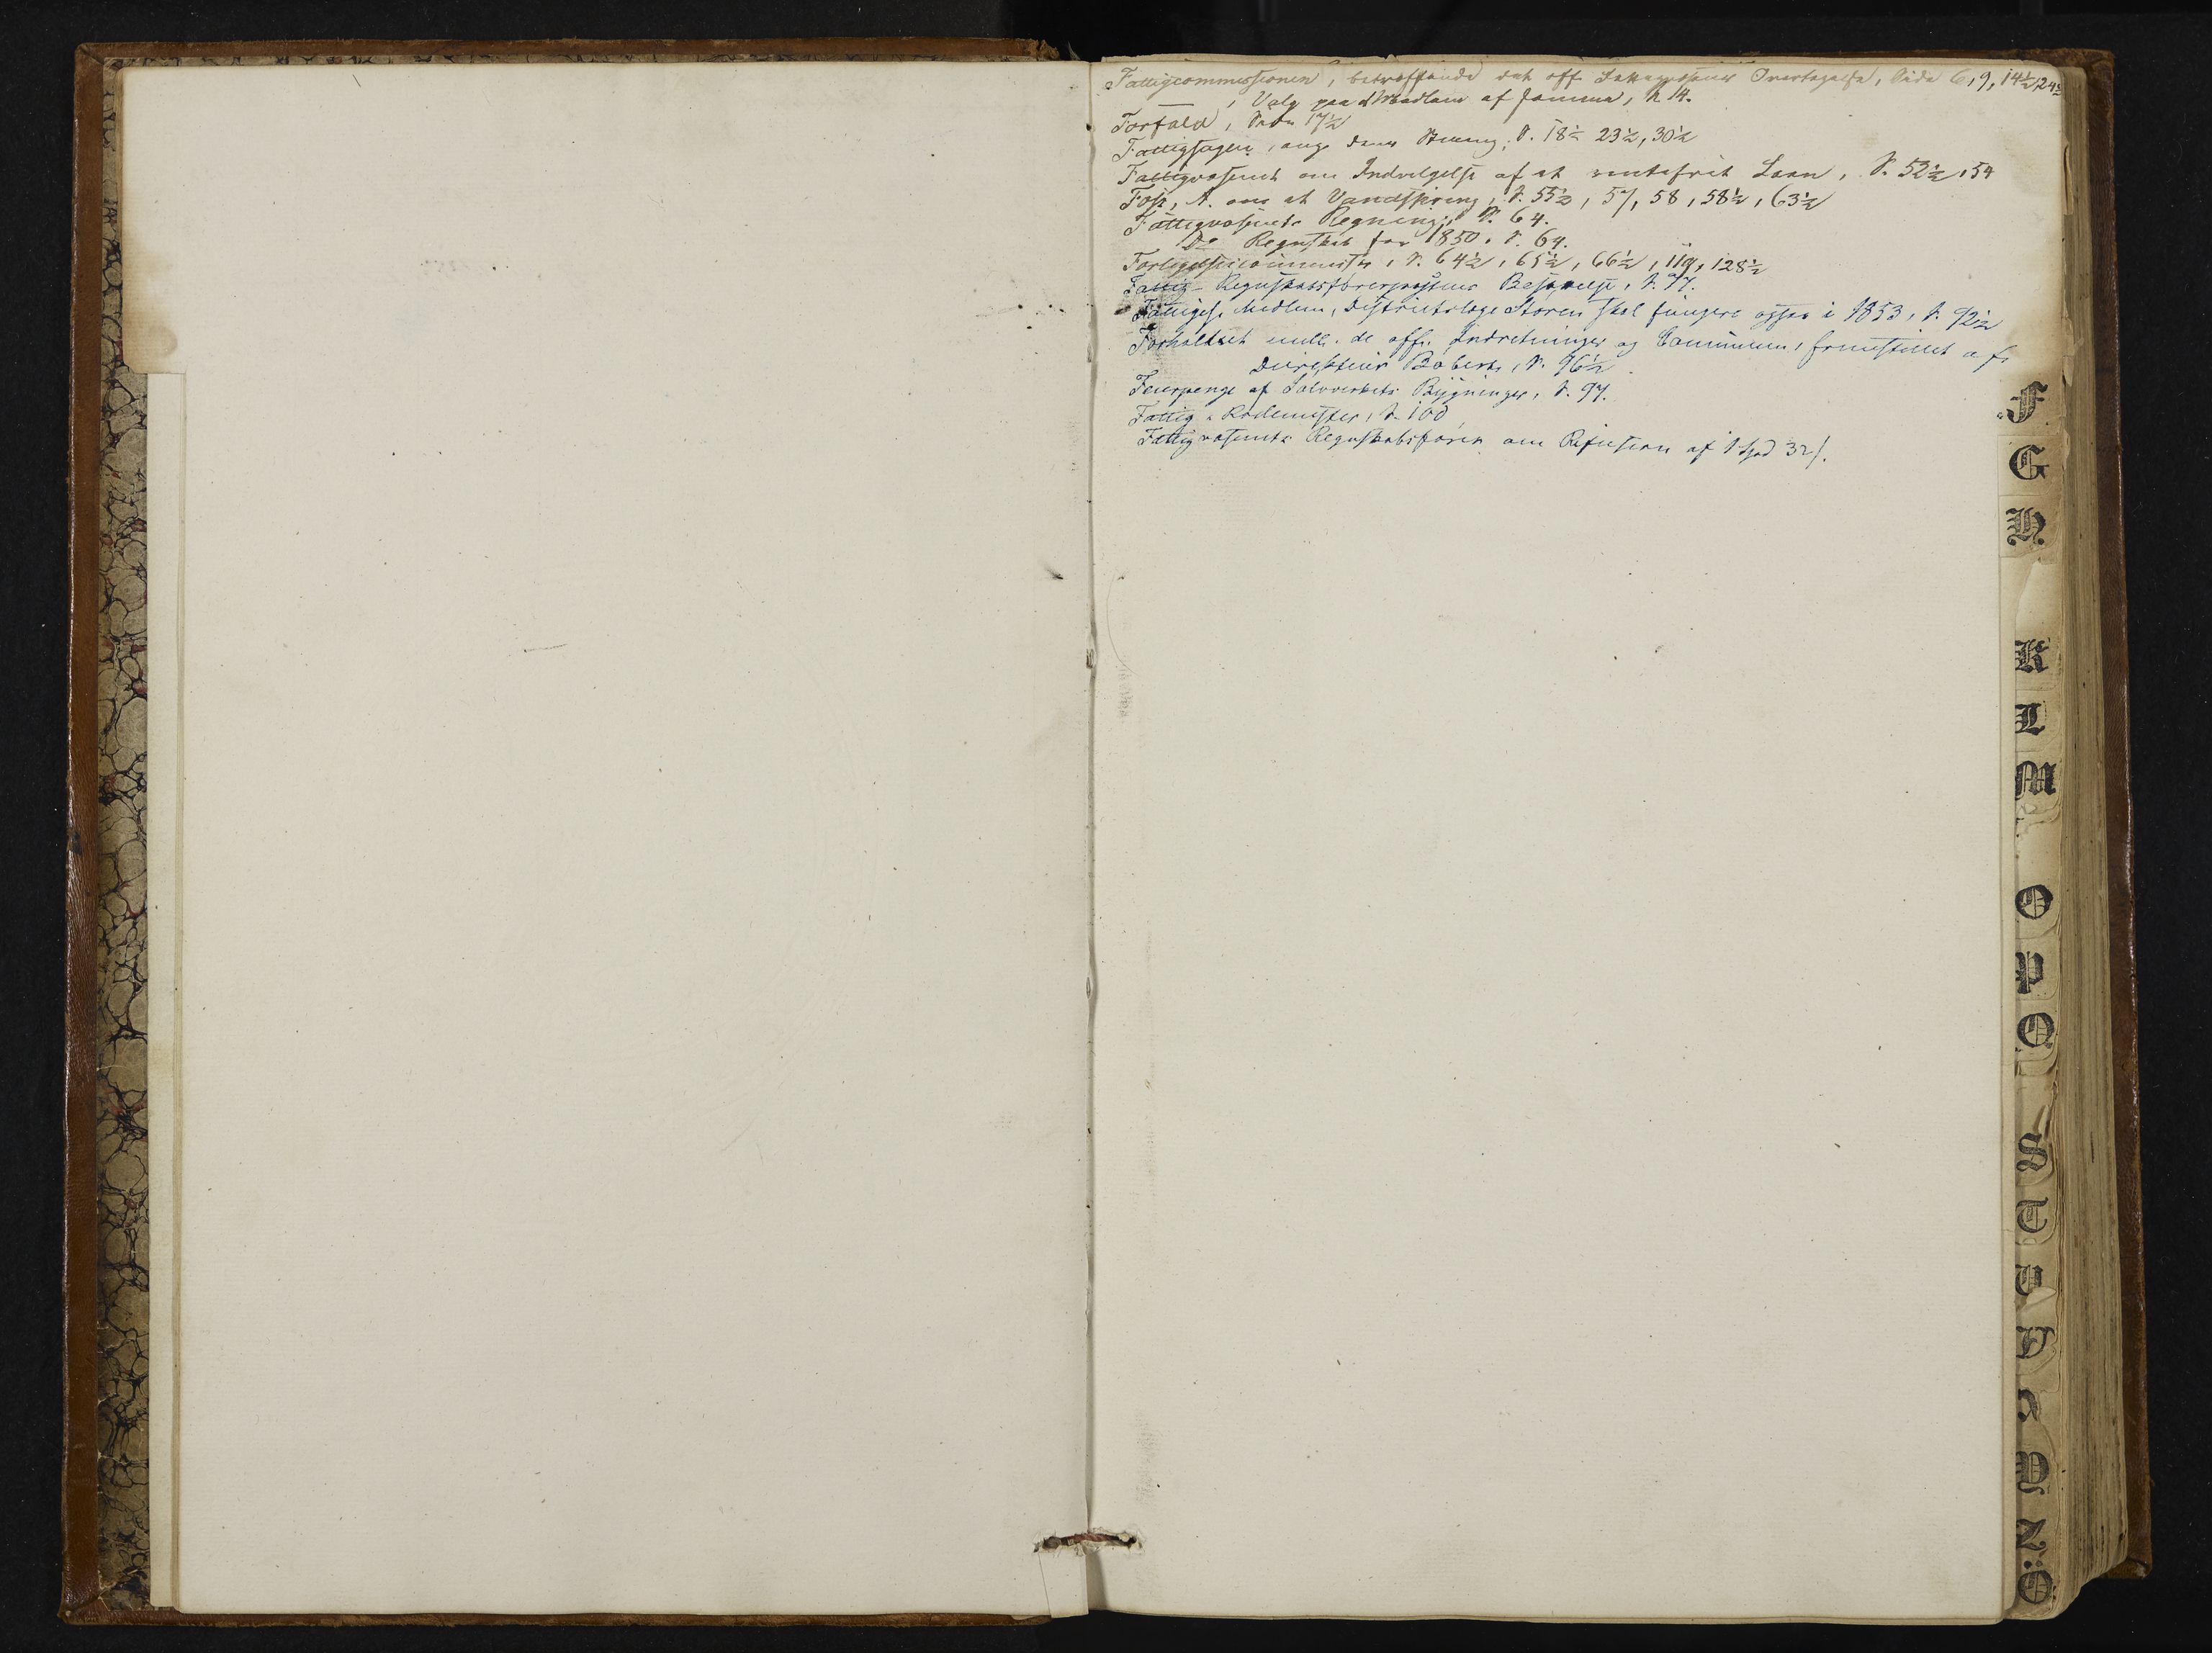 Fattigcommissionen, betræffende det off. Overtagelse, Side 6, 9, 14½, 24½
— , Valg paa Medlem af samme, S. 14.
Forfald, Side 17½
Fattigsagen, ang. dens S. 18½ 23½, 30½
Fattigvæsenet om Indvilgelse af et rentefrit Laan, S. 52½, 54
Foss, A. om et Vandspring, S. 55½, 57, 58, 58½, 63½
Fattigvæsenets Regning, S. 64.
Do Regnskab for 1850. S. 64.
Forligelsescommissær, S. 64½, 65½, 66½, 119, 128½
Fattig-Regnskabsførerpostens Besættelse, S. 77.
Medlem, Districtslæge Støren skal fungere ogsaa i 1853, S. 92½
Forholdet mell. de off. Indretninger og Communen, fremstillet af
Directeur Böbert, S. 96½
af Sølvverkets Bygninger, S. 97.
Fattig-Rodemester, S. 100
Fattigvæsenets Regnskabsfører om Refusion af 1 Spd 32 s.
F
G
H
K
L
M
O
P
Q
S
T
U
V
Ö